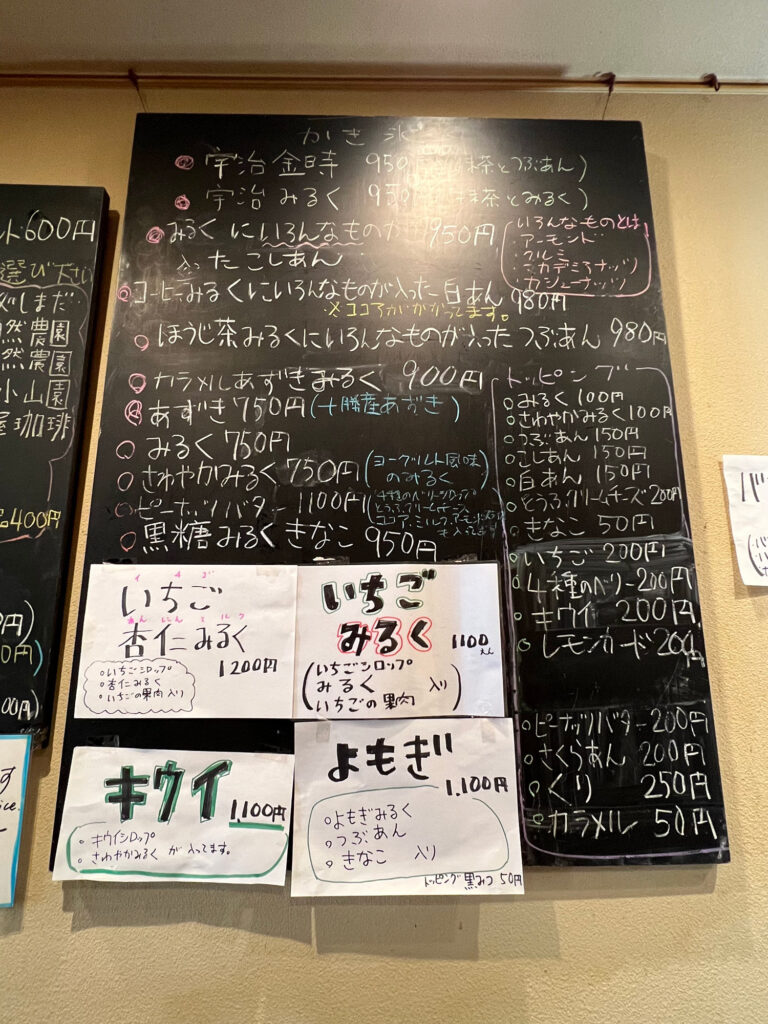 かき氷
宇治金時 950円 (抹茶とつぶあん)
宇治みるく 950円 (抹茶とみるく)
みるくにいろんなものが 950円
入ったこしあん
いろんなものとは
・アーモンド
・クルミ
・マカデミアナッツ
・カシューナッツ
コーヒーみるくにいろんなものが入った白あん 980円
※ココアがかかってます。
ほうじ茶みるくにいろんなものが入ったつぶあん 980円
カラメルあずきみるく 900円
あずき 750円 (十勝産あずき)
みるく 750円
さわやかみるく 750円 (ヨーグルト風味のみるく)
ピーナッツバター 1100円
黒糖みるくきなこ 950円
トッピング
みるく 100円
さわやかみるく 100円
つぶあん 150円
こしあん 150円
白あん 150円
とうふクリームチーズ 200円
きなこ 50円
いちご 200円
4種のベリー 200円
キウイ 200円
レモンカード 200円
ピーナッツバター 200円
さくらあん 200円
くり 250円
カラメル 50円
イチゴ
いちご
あんにんミルク
杏仁みるく
1200円
いちごシロップ
杏仁みるく
いちごの果肉入り
いちご
みるく
1100えん
(いちごシロップ
みるく 入り
いちごの果肉)
キウイ
1,100円
・キウイシロップ
・さわやかみるく が入ってます。
よもぎ
1,100円
よもぎみるく
つぶあん
きなこ 入り
トッピング 黒みつ 50円
600円
選び下さい
しまだ
然農園
然農園
小山園
珈琲
400円